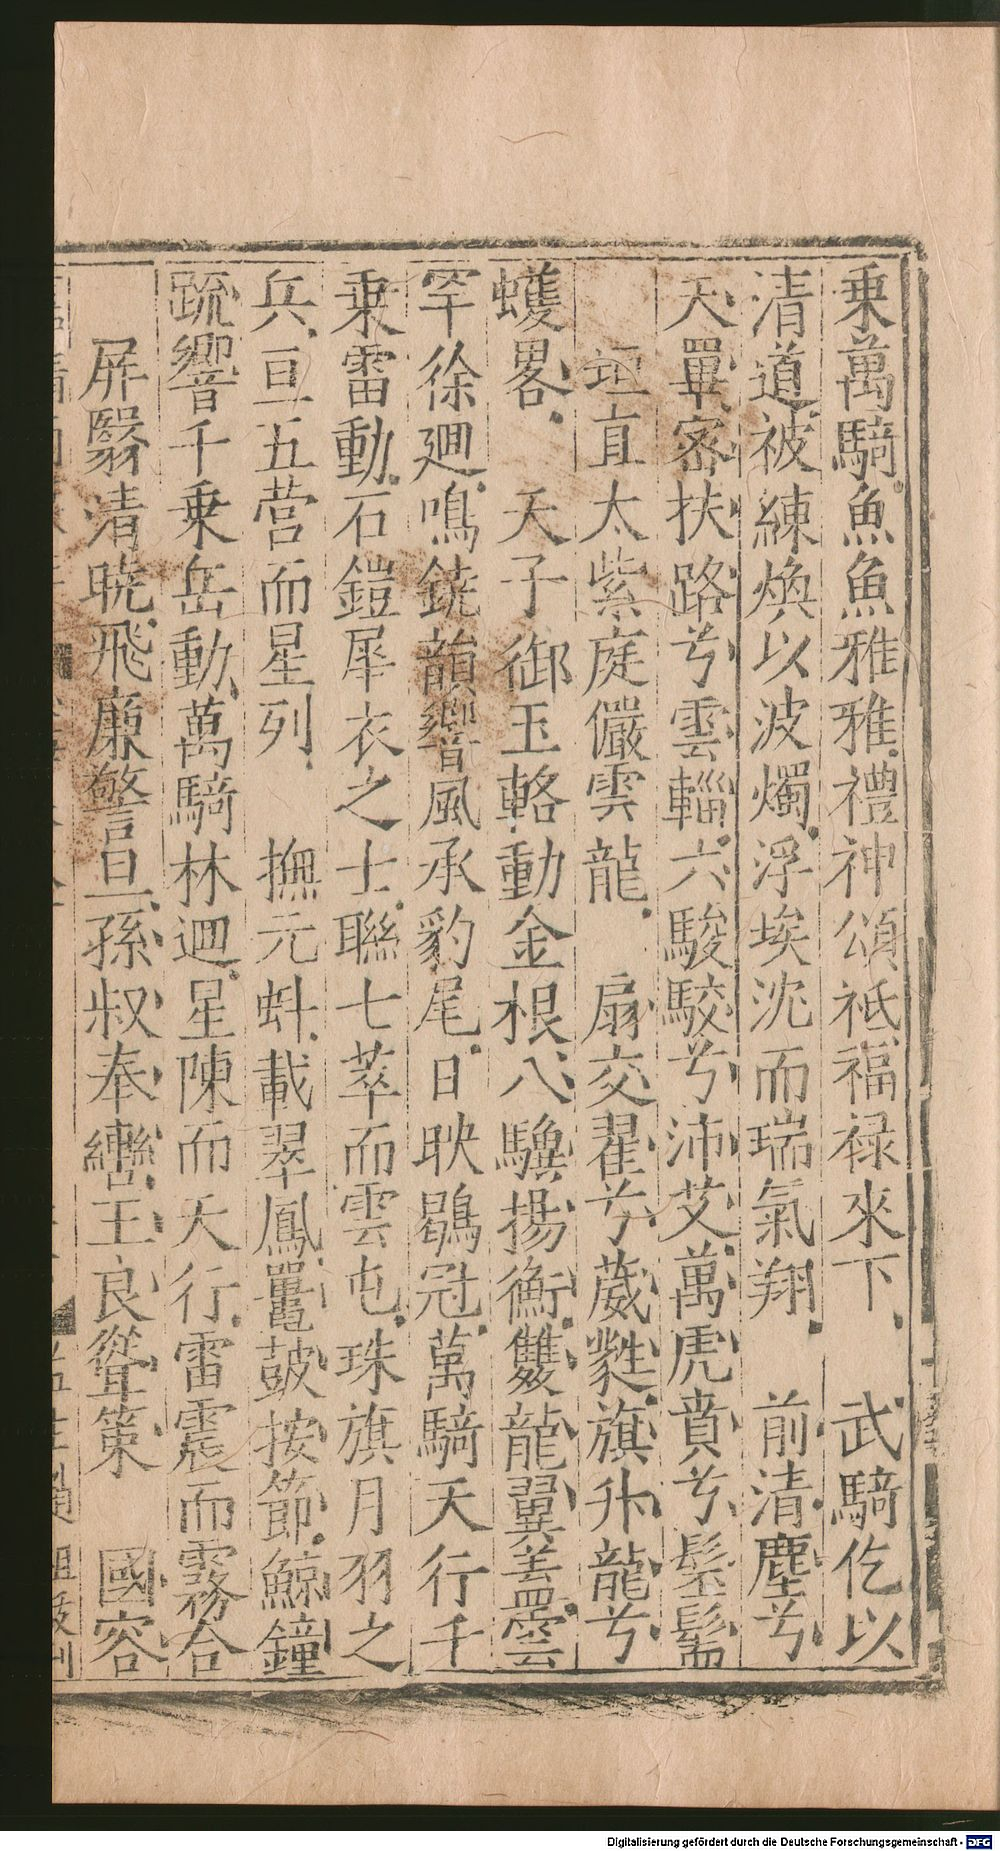 乗萬騎魚魚雅雅禮神頌祗福禄來下　武騎仡以
清道被練煥以波燭浮埃沈而瑞氣翔　前清塵兮
天罼宻扶路兮雲輜六駿駮兮沛艾萬虎賁兮髬髵
垣直太紫庭儼雲龍　扇交翟兮葳蕤旗升龍兮
蠖畧　天子御玉輅動金根八驥揚衡雙龍翼葢雲
罕徐廻鳴鐃韻響風承豹尾日映鶡冠萬騎天行千
乗雷動石鎧犀衣之士聯七萃而雲屯珠旗月羽之
兵亘五营而星列　撫元虯載翠鳳鼍鼓按節鯨鐘
䟽響千乗岳動萬騎林廻星陳而天行雷震而霧合
屏翳清暁飛廉警旦孫叔奉轡王良聳策　國容
Digitalisierung gefördert durch die Deutsche Forschungsgemeinschaft - DFG